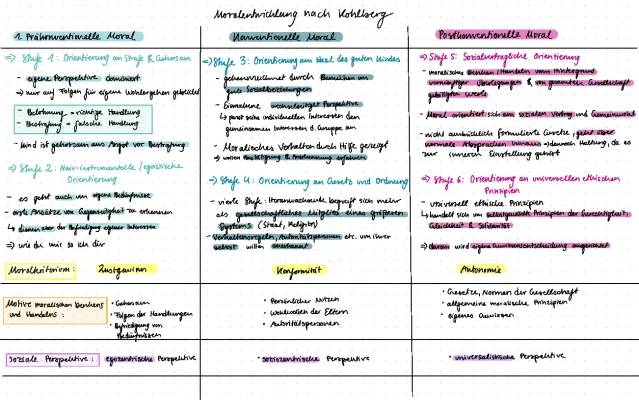 Moralentwicklung nach Kohlberg
1. Präkonventionelle Moral
⇒ Stufe 1: Orientierung an Strafe & Gehorsam
- eigene Perspektive dominiert
⇒ nur auf Folgen für eigene Wohlergehen geblickt
- Belohnung = richtige Handlung
- Bestrafung = falsche Handlung
- Kind ist gehorsam aus Angst vor Bestrafung
⇒ Stufe 2: Naiv-instrumentelle / egoistische
Orientierung
- es geht auch um eigene Bedürfnisse
- erste Ansätze von Gegenseitigkeit zu erkennen
↳ dienen aber der Befriedigung eigener Interessen
⇒ wie du mir so ich dir
Konventionelle Moral
⇒ Stufe 3: Orientierung am Ideal des guten Kindes
- gekennzeichnet durch Bemühen um
gute Sozialbeziehungen
- Einnahme wechselseitiger Perspektive
↳ passt seine individuellen Interessen den
gemeinsamen Interessen d. Gruppe an
- Moralisches Verhalten durch Hilfe gezeigt
⇒ wollen Bestätigung & Anerkennung erfahren
⇒ Stufe 4: Orientierung an Gesetz und Ordnung
- vierte Stufe: Heranwachsende begreift sich mehr
als gesellschaftliches Mitglied eines größeren
Systems (Staat, Religion)
- Verhaltensregeln, Autoritätspersonen etc. um ihrer
selbst willen anerkannt
Postkonventionelle Moral
⇒ Stufe 5: Sozialvertragliche Orientierung
- moralisches Denken/Handeln vom Hintergrund
vernünftiger Überlegungen & von gesamten Gesellschaft
gebilligten Werte
- Moral orientiert sich am sozialen Vertrag und Gemeinwohl
- nicht ausdrückliche formulierte Gesetze, geht über
normale Absprachen hinaus ⇒ dennoch Haltung, da es
zur inneren Einstellung gehört
⇒ Stufe 6: Orientierung an universellen ethischen
Prinzipien
- universell ethische Prinzipien
↳ handelt sich um selbstgewählte Prinzipien der Gerechtigkeit,
Gleichheit & Solidarität
⇒ daran wird eigene Gewissensentscheidung ausgerichtet
Moralkriterium: Zustimmen
Konformität
Autonomie
Motive moralischen Denkens
und Handelns:
• Gehorsam
• Folgen der Handlungen
• Befriedigung von
Bedürfnissen
• Persönlicher Nutzen
• Wohlwollen der Eltern
• Autoritätspersonen
• Gesetze, Normen der Gesellschaft
• allgemeine moralische Prinzipien
• eigenes Gewissen
Soziale Perspektive: egozentrische Perspektive
• soziozentrische Perspektive
• universalistische Perspektive